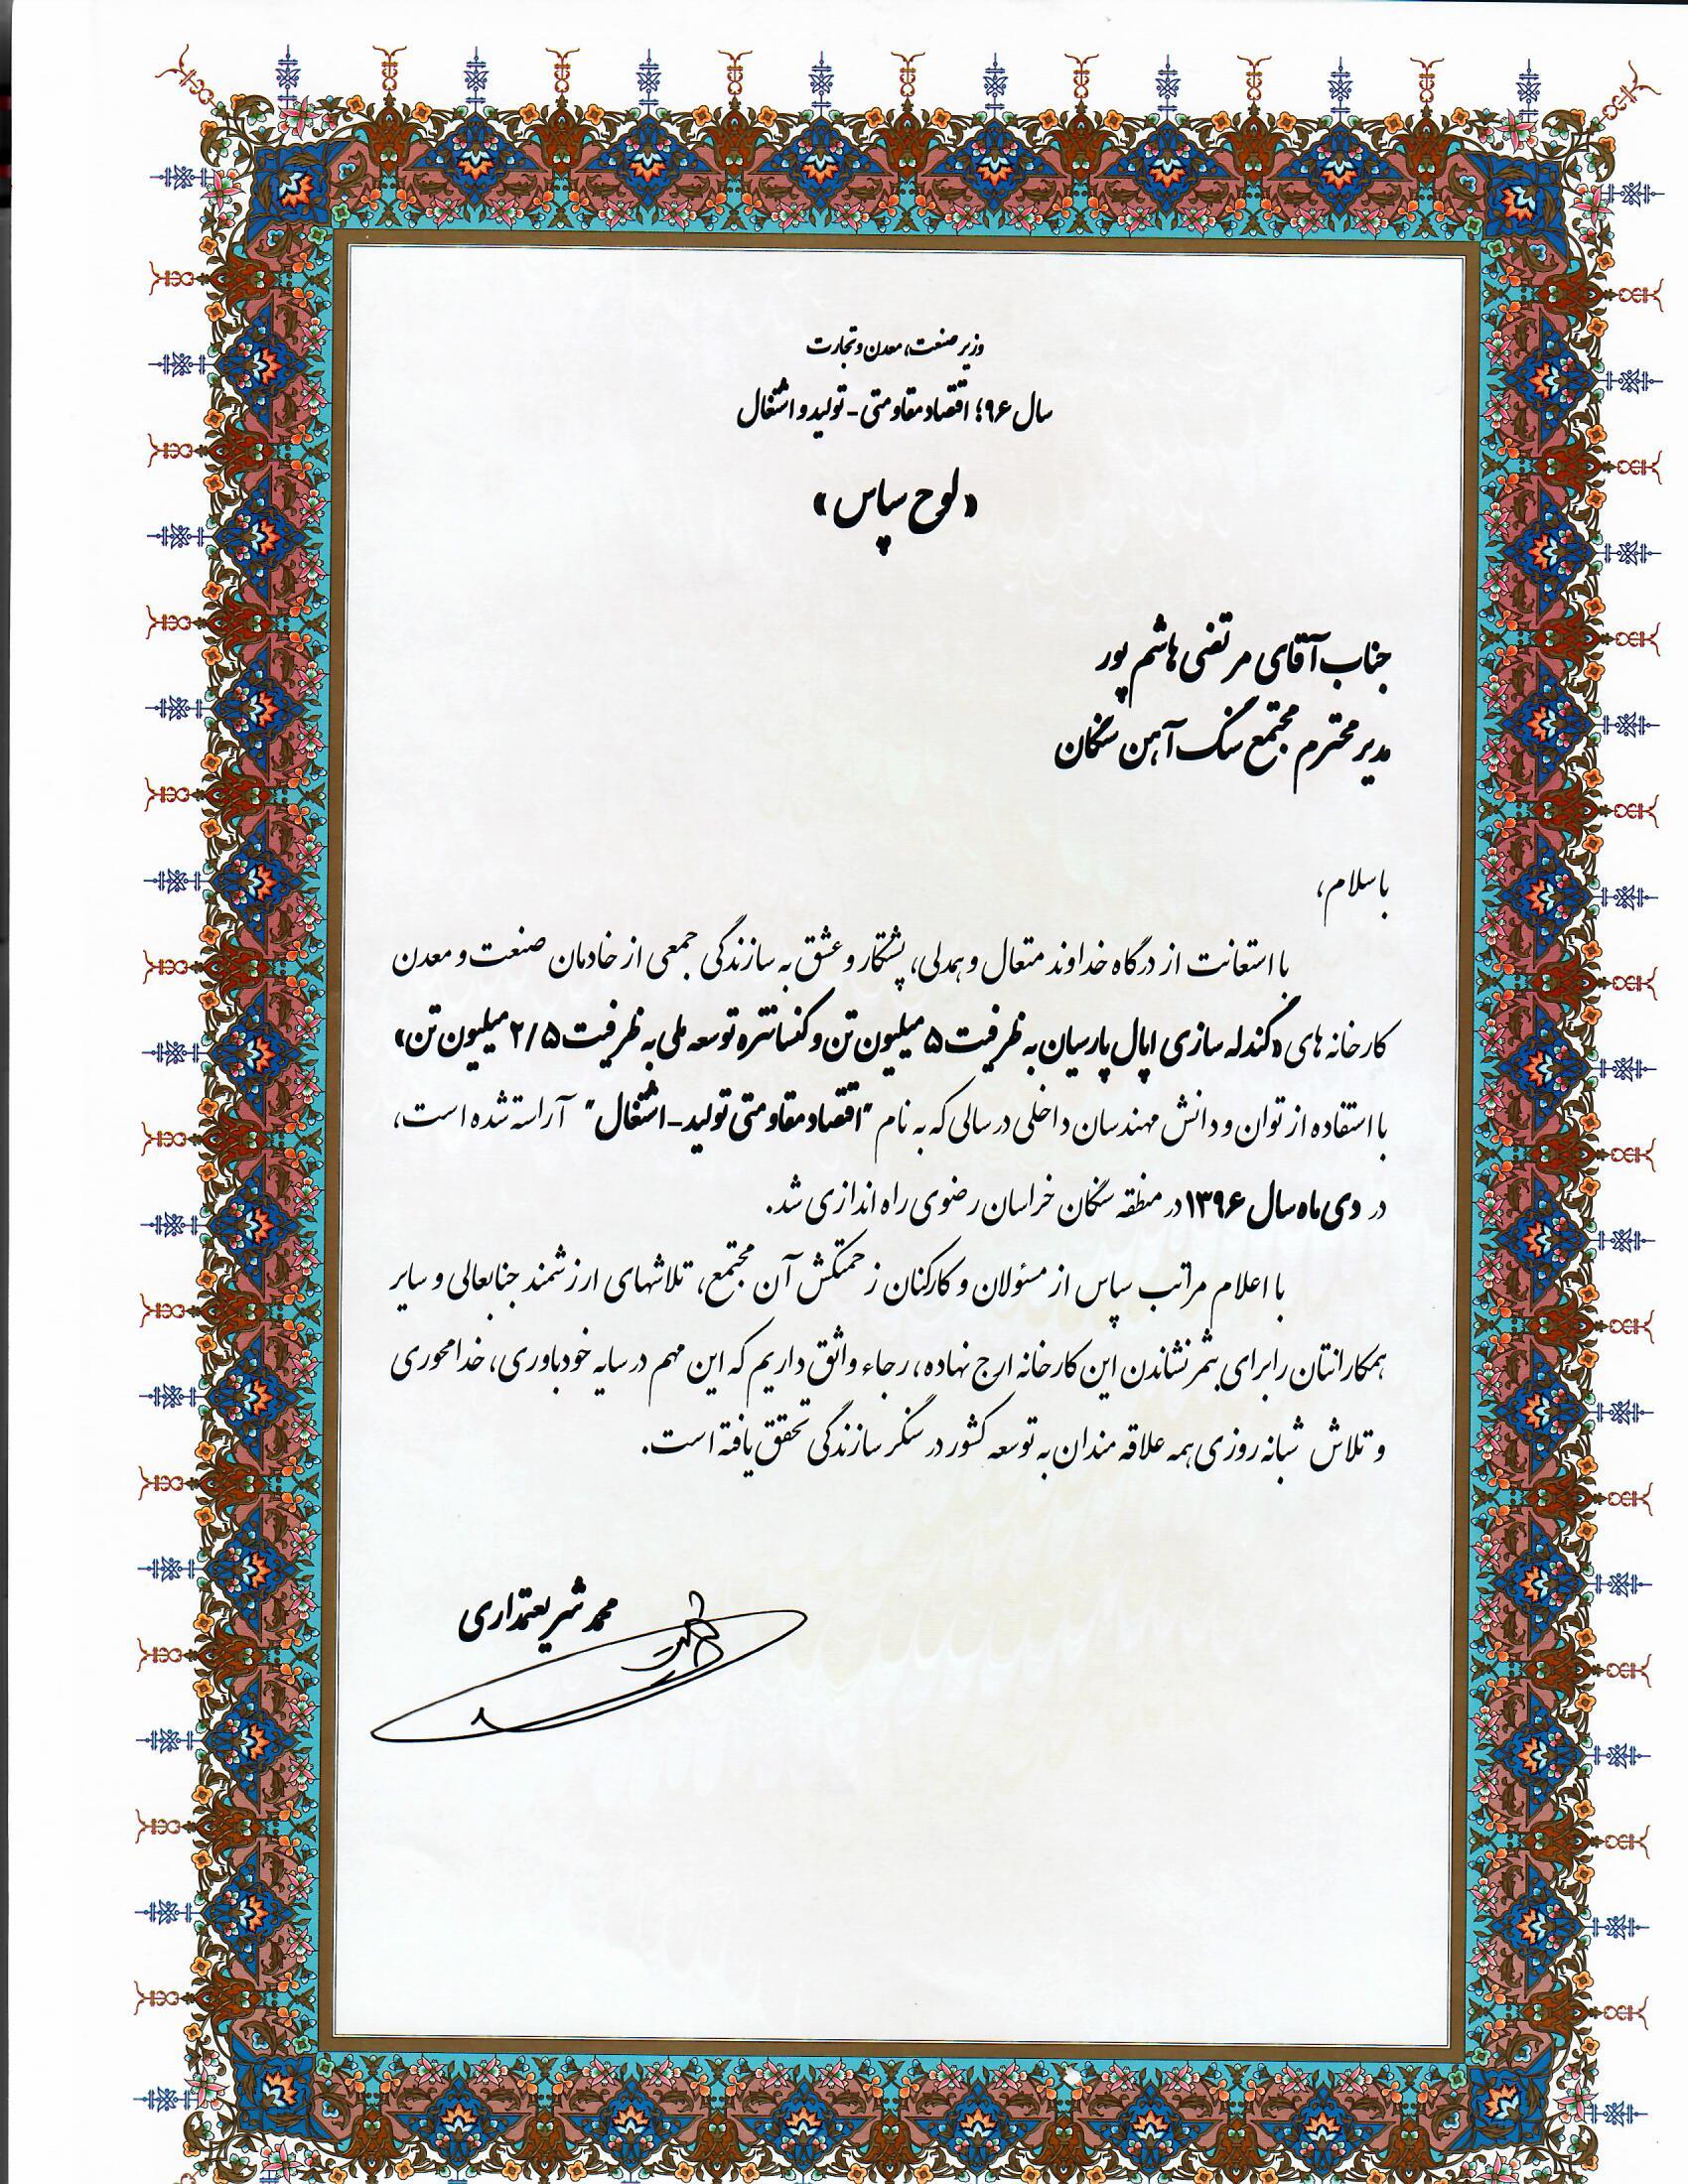 وزیر صنعت، معدن و تجارت
سال ۹۶؛ اقتصاد مقاومتی - تولید و اشتغال
«لوح سپاس»
جناب آقای مرتضی هاشم پور
مدیر محترم مجتمع سنگ آهن سنگان
با سلام،
با استعانت از درگاه خداوند متعال و همدلی، پشتکار و عشق به سازندگی جمعی از خادمان صنعت و معدن
کارخانه های «گندله سازی اپال پارسیان به ظرفیت ۵ میلیون تن و کنسانتره توسعه ملی به ظرفیت ۲/۵ میلیون تن»
با استفاده از توان و دانش مهندسان داخلی در سالی که به نام "اقتصاد مقاومتی تولید - اشتغال" آراسته شده است،
در دی ماه سال ۱۳۹۶ در منطقه سنگان خراسان رضوی راه اندازی شد.
با اعلام مراتب سپاس از مسئولان و کارکنان زحمتکش آن مجتمع، تلاشهای ارزشمند جنابعالی و سایر
همکارانتان را برای بثمر نشاندن این کارخانه ارج نهاده، رجاء واثق داریم که این مهم در سایه خودباوری، خدامحوری
و تلاش شبانه روزی همه علاقه مندان به توسعه کشور در سنگر سازندگی تحقق یافته است.
محمد شریعتمداری